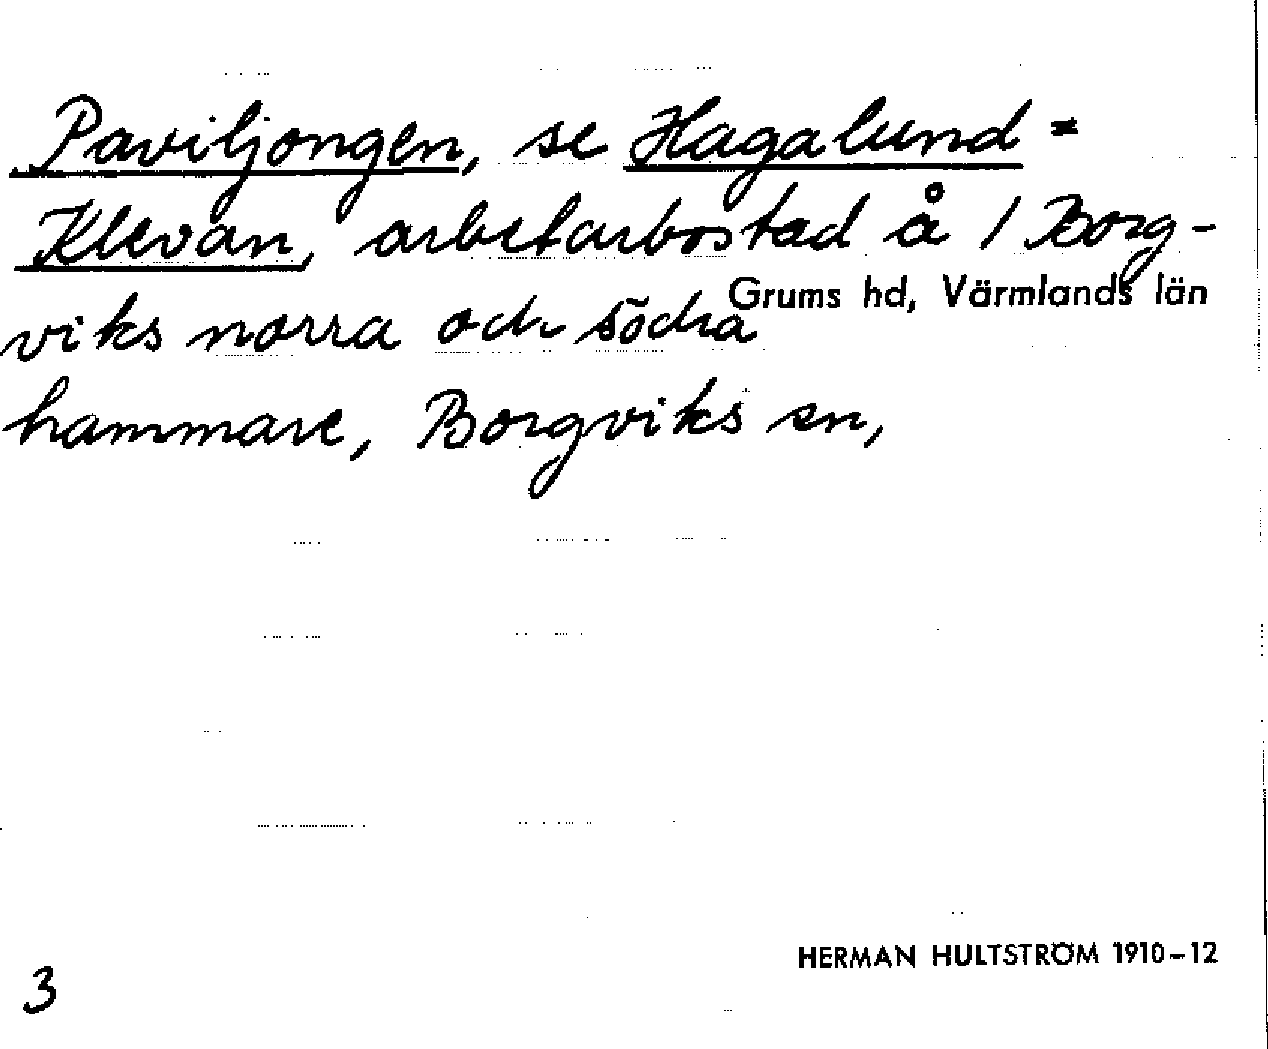 Paviljongen, se Hagalund =
Klevan, arbetarbostad å 1 Borg-
Grums hd, Värmlands län
viks norra och södra
hammare, Borgviks sn,
HERMAN HULTSTRÖM 1910-12
3